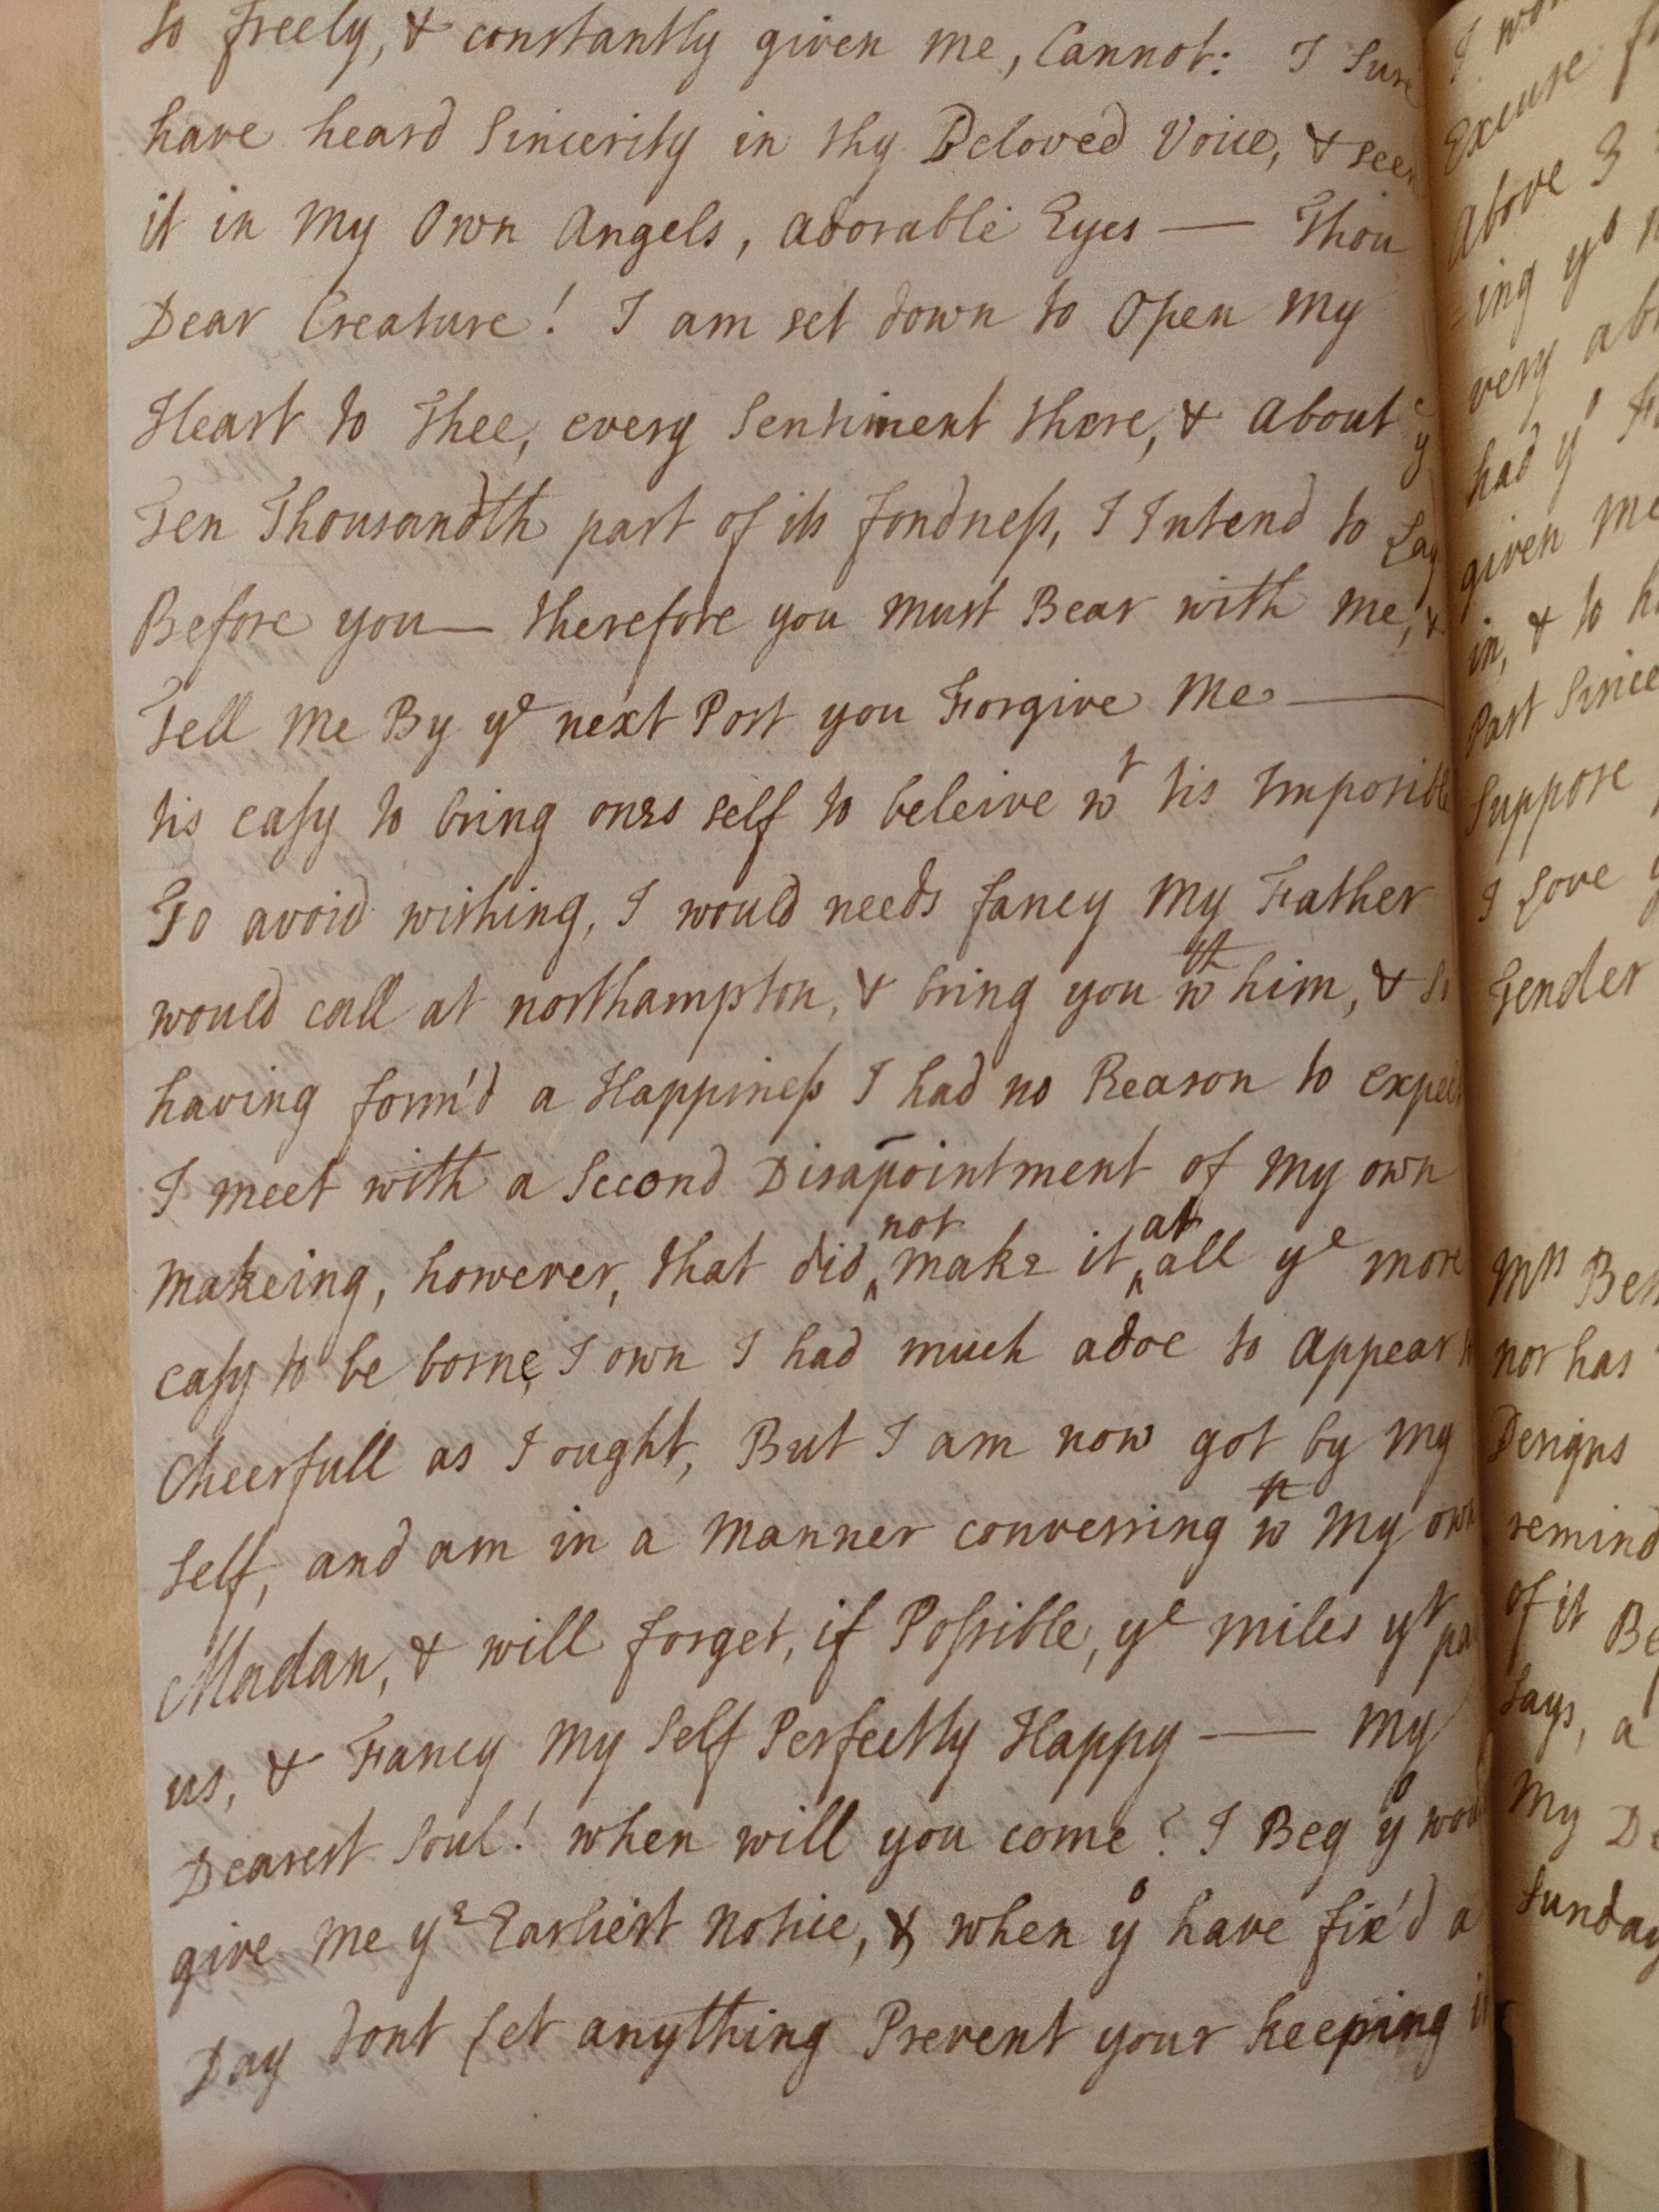 so freely, & constantly given me, Cannot: I Sure
have heard Sincerity in thy Beloved Voice, & seen
it in My Own Angels, adorable Eyes — Thou
Dear Creature! I am set down to Open My
Heart to Thee, every Sentiment there, & About yᵉ
Ten Thousandth part of its fondneſs, I Intend to Lay
Before you — therefore you Must Bear with Me, &
Tell Me By yᵉ next Post you Forgive Me —
tis eaſy to bring ones self to beleive wᵗ tis Imposible
To avoid wishing, I would needs fancy My Father
would call at northampton, & bring you wᵗʰ him, & so
having form'd a Happineſs I had no Reason to expect
I meet with a Second Disapointment of My own
Makeing, however, that did not make it at all yᵉ more
eaſy to be borne, I own I had much adoe to Appear
Cheerfull as I ought, But I am now got by My
Self, and am in a Manner conversing wᵗʰ My own
Madan, & will forget, if Poſsible, yᵉ Miles yᵗ
us, & Fancy My Self Perfectly Happy — My
Dearest Soul! when will you come? I Beg yᵒ
give Me yᵉ Earliest Notice, & when yᵒ have fix'd a
Day dont let anything Prevent your keeping it
I
Excuse
Above 3
=ing yᵒ
very
had yᵉ
given Me
in, & to
Past Since
Suppose
I Love
Tender
Mʳˢ
nor has
Designs
remind
of it
Says, a
My
Sunday